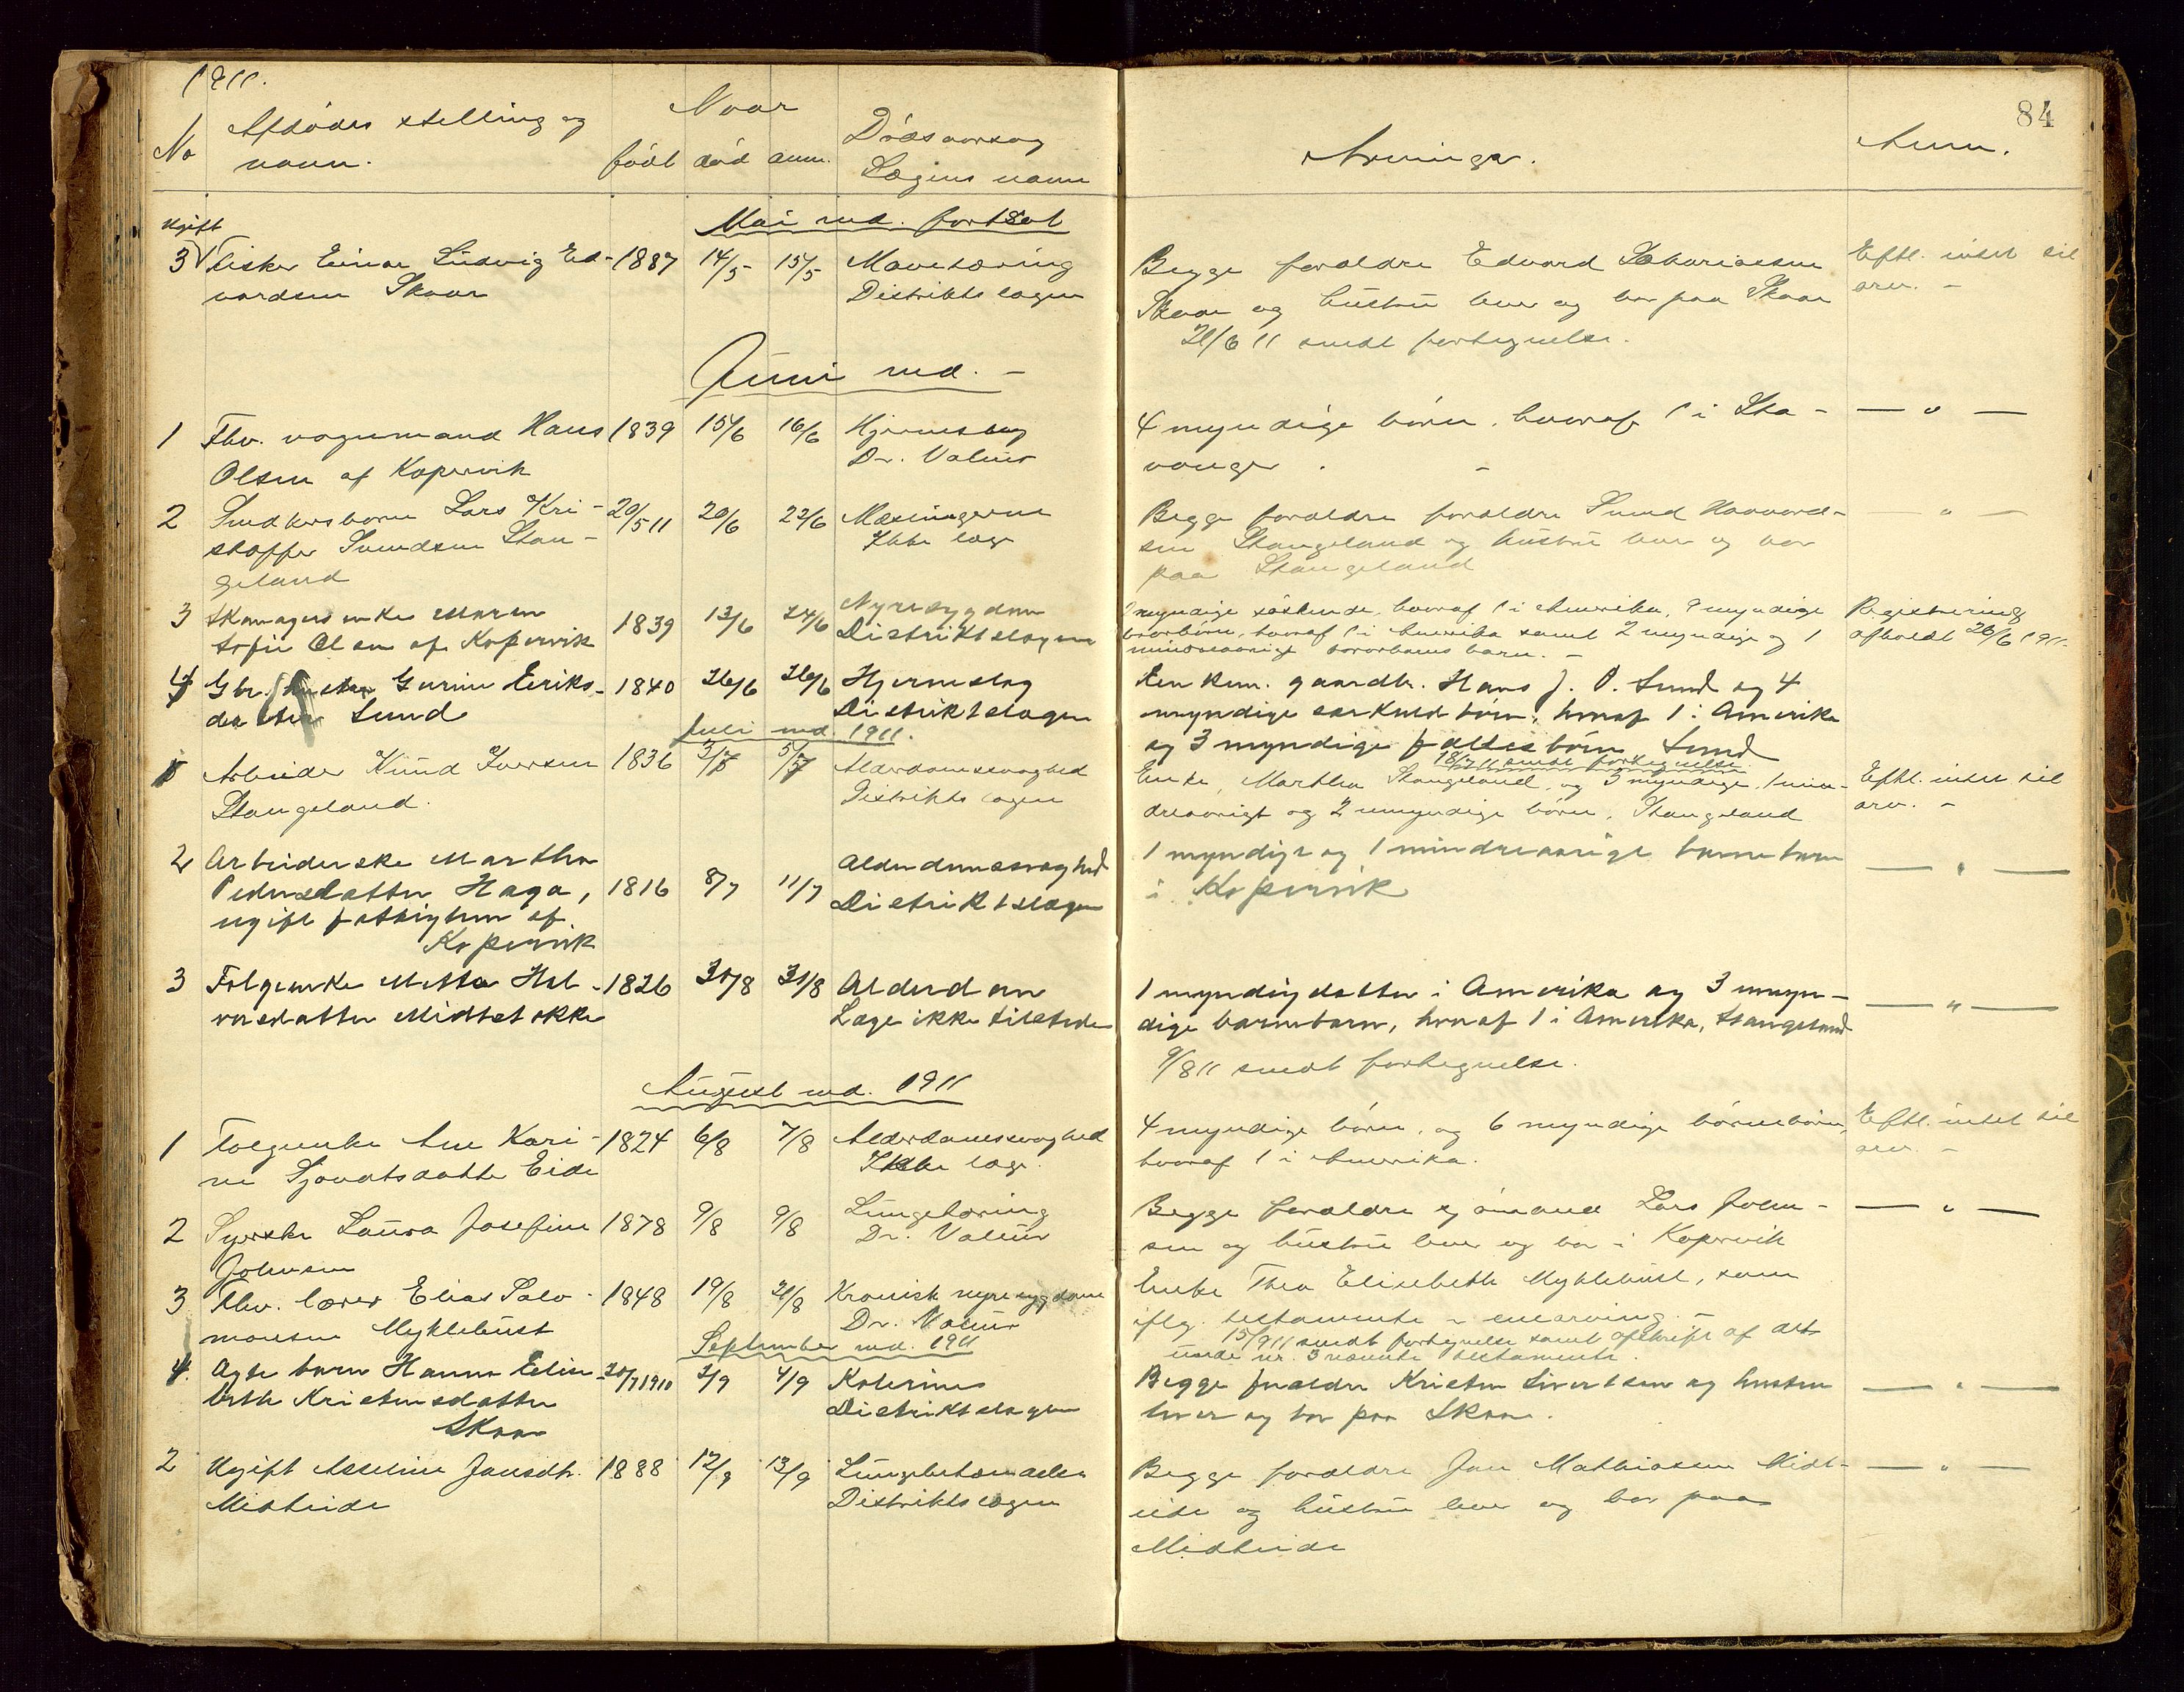 1911.
84
No
Afdødes stilling og
navn.
Naar
født død anm.
Dødsaarsag
Lægens navn
Arvinger.
Anm.
Mai md. fortsat
Ugift
3 Fisker Einar Ludvig Ed-
vardsen Skaar
1887 14/5 15/5 Mavetæring
Distriktslægen
Begge forældre Edvard Zakariasen
Skaar og hustru lever og bor paa Skaar
21/6 11 sendt fortegnelse.
Eftl. intet til
arv. -
Juni md. -
1 Fhv. vognmand Hans
Olsen af Kopervik
1839 15/6 16/6 Hjerneslag
Dr. Valeur
4 myndige børn, hvoraf 1 i Sta-
vanger. -
— " —
2
Lars Kri-
stoffer Svendsen Stan-
geland
20/5 11 20/6 22/6
Ikke læge
Begge forældre forældre Svend Haavard-
sen Stangeland og hustru lever og bor
paa Stangeland
— " —
3 Skomagerenke Maren
Sofie Olsen af Kopervik
1839 13/6 24/6 Nyresygdom
Distriktslægen
myndige søskende, hvoraf 1 i Amerika, 9 myndige
brorbørn, hvoraf 1 i Amerika samt 2 myndige og 1
mindreaarigt sørorbarns barn. -
Registrering
afholdt 26/6 1911.
4 Gbr. hustru Gurine Eeriks-
datter Sund
1840 26/6 26/6 Hjerneslag
Distriktslægen
Enkem. gaardbr. Hans J. O. Sund og 4
myndige særkuld børn, hvoraf 1 i Amerika
og 3 myndige fælles børn, Sund
18/7 11 sendt fortegnelse.
Juli md. 1911.
1 Arbeider Knud Iversen
Stangeland.
1836 3/7 5/7 Alderdomssvaghed
Distriktslægen
Enke, Martha Stangeland, og 3 myndige, 1 min-
dreaarigt og 2 umyndige børn, Stangeland
Eftl. intet til
arv. -
2 Arbeiderske Martha
Pedersdatter Haga,
ugift fattiglem af
Kopervik
1816 8/7 11/7 Alderdomssvaghed
Distriktslægen
1 myndige og 1 mindreaarige barnebarn
i Kopervik
— " —
3 Folgeenke Mette Hal-
vorsdatter Midtstokke
1826 30/8 31/8 Alderdom
Læge ikke tilstede
1 myndig datter i Amerika og 3 umyn-
dige barnebarn, hvoraf 1 i Amerika, Stangeland
9/8 11 sendt fortegnelse.
— " —
August md. 1911
1 Folgeenke Ane Kari-
ne Sjovatsdatter Eide
1824 6/8 7/8 Alderdomssvaghed
Ikke læge.
4 myndige børn, og 6 myndige børnebørn,
hvoraf 1 i Amerika.
Eftl. intet til
arv. -
2 Syerske Laura Josefine
Johnsen
1878 9/8 9/8 Lungetæring
Dr. Valeur
Begge forældre sjømand Lars John-
sen og hustru lever og bor i Kopervik
— " —
3 Fhv. lærer Elias Salo-
monsen Myklebust
1848 19/8 21/8 Kronisk nyresygdom
Dr. Valeur
Enke Thea Elisebeth Myklebust, som
iflg. testamente er enearving. -
15/9 11 sendt fortegnelse samt afskrift af det
under nr. 3 nævnte testamente.
September md. 1911
Ægte barn Hanna Elise
beth Kristensdatter
Skaar
30/7 1910 2/9 4/9 Kolerine
Distriktslægen
Begge forældre Kristen Sivertsen og hustru
lever og bor paa Skaar.
— " —
2 Ugift Asseline Jansdtr.
Midteide
1888 12/9 13/9 Lungebetændelse
Distriktslægen
Begge forældre Jan Mathiasen Midt-
eide og hustru lever og bor paa
Midteide
— " —